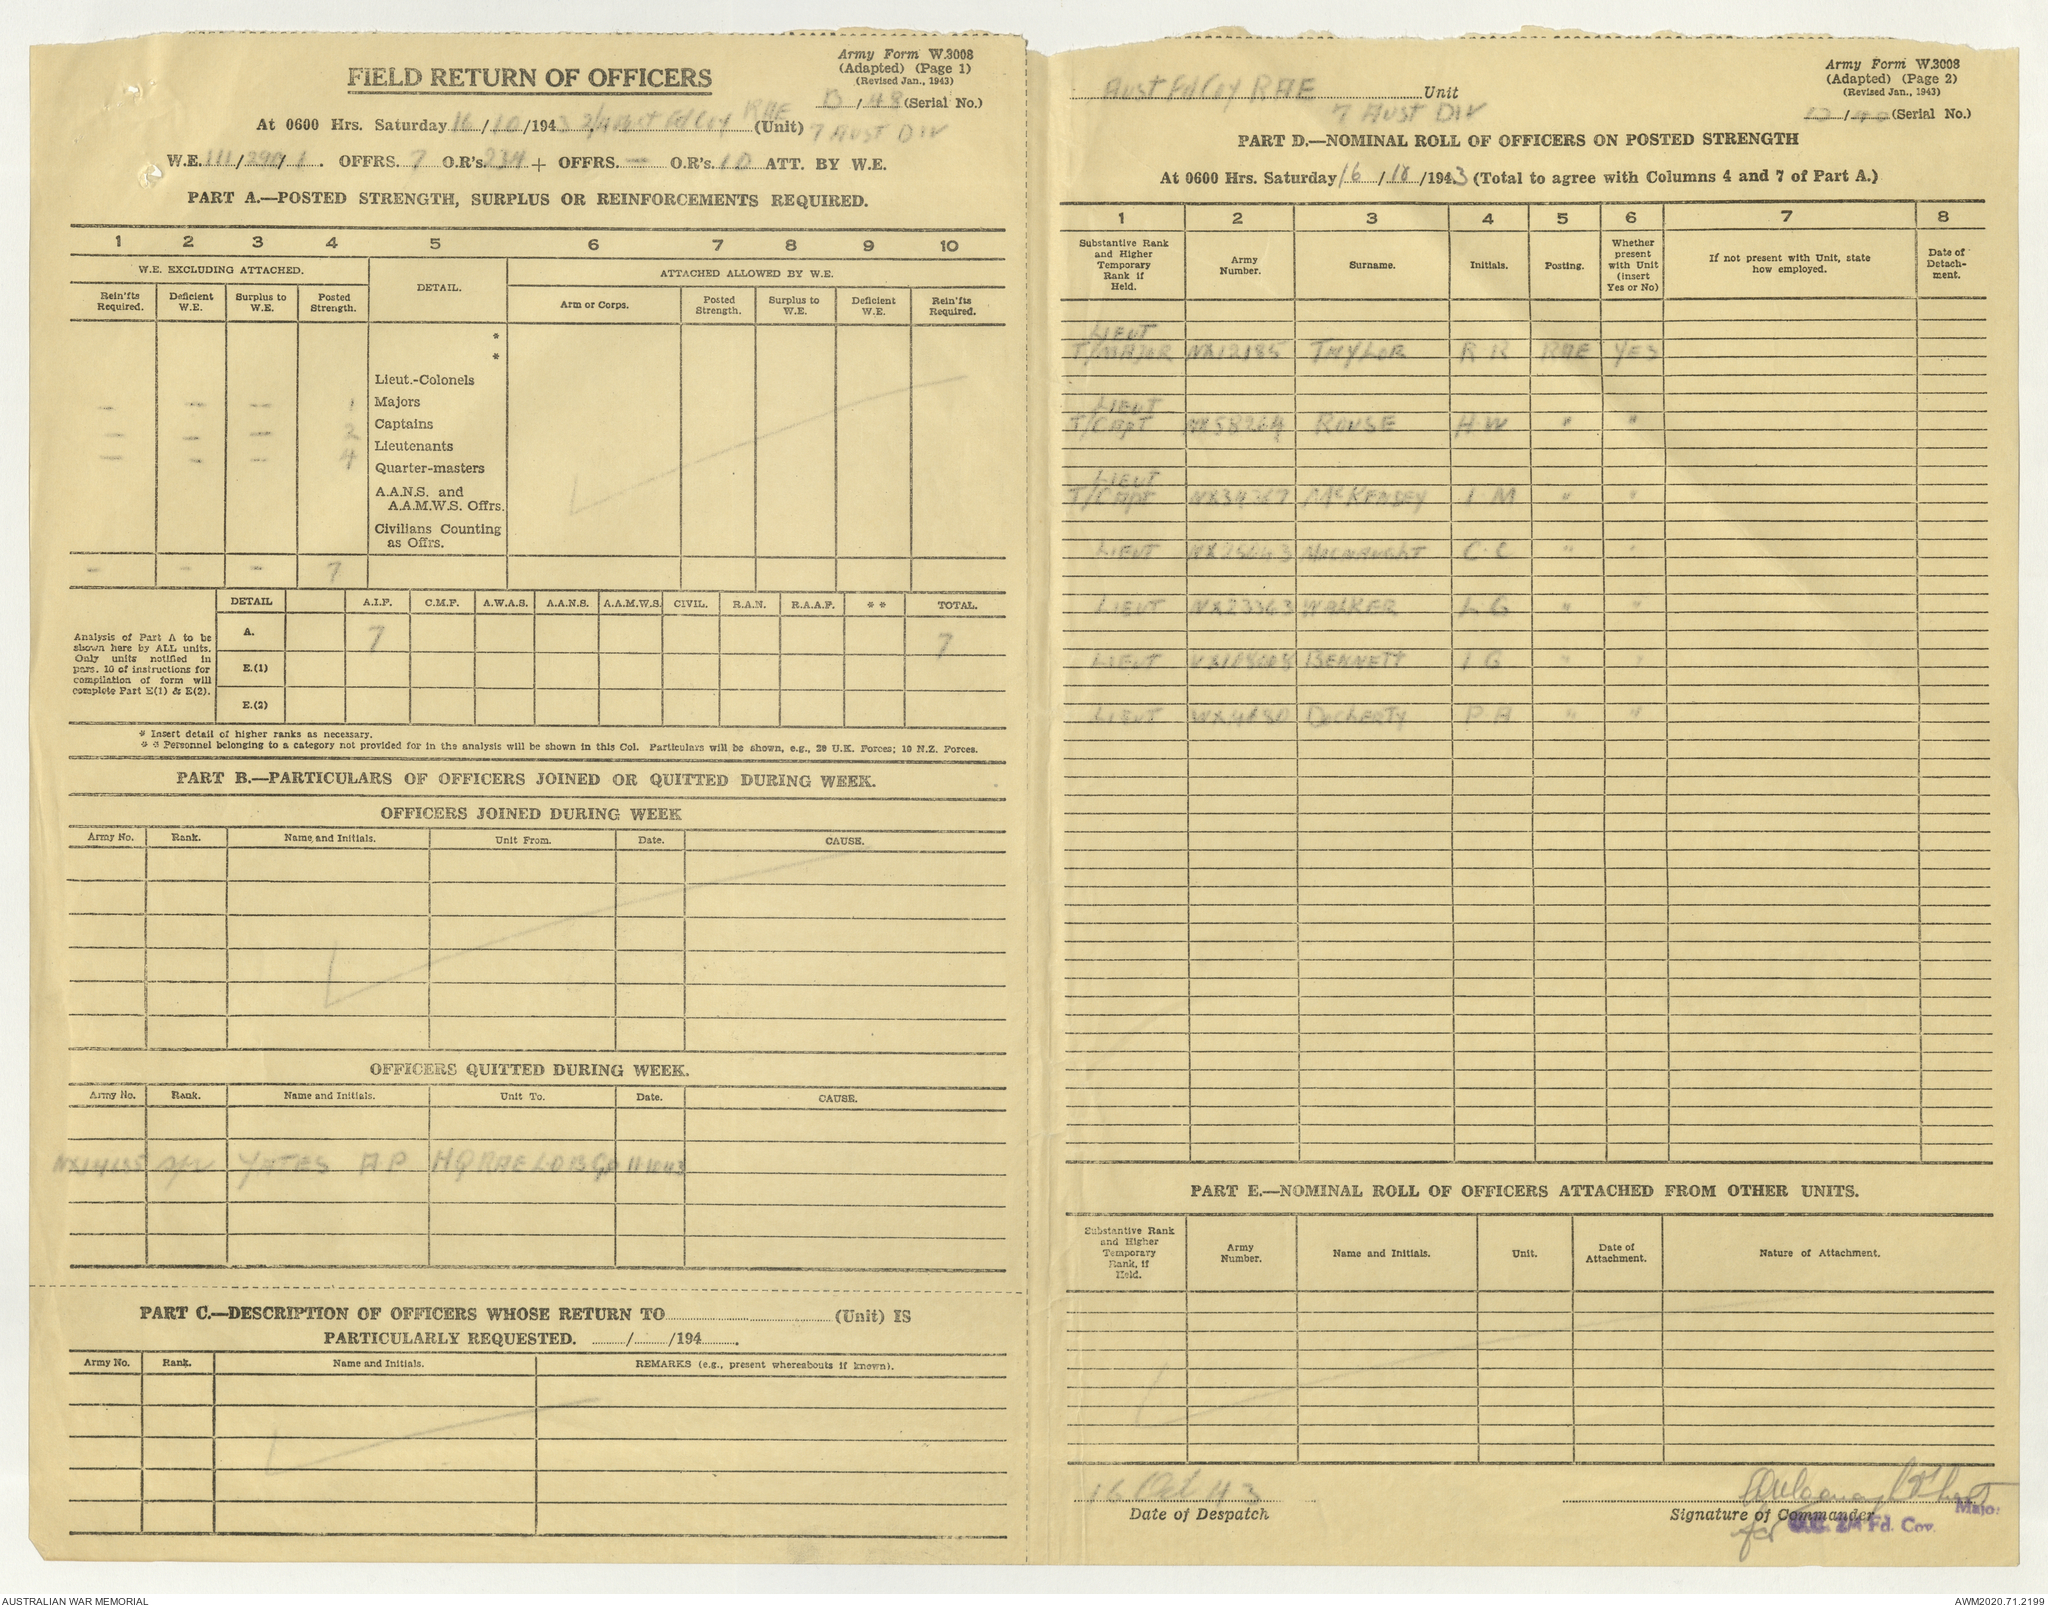 Army Form W.3008
(Adapted) (Page 1)
(Revised Jan., 1943)
FIELD RETURN OF OFFICERS
D/48 (Serial No.)
At 0600 Hrs. Saturday 16/10/1943 2/4 Aust Fd Coy RAE (Unit) 7 AUST DIV
W.E. 111/290/1. OFFRS. 7 O.R's. 234 + OFFRS. — O.R's. 10 ATT. BY W.E.
PART A.—POSTED STRENGTH, SURPLUS OR REINFORCEMENTS REQUIRED.
1 2 3 4 5 6 7 8 9 10
W.E. EXCLUDING ATTACHED. DETAIL. ATTACHED ALLOWED BY W.E.
Rein'fts Required. Deficient W.E. Surplus to W.E. Posted Strength. Arm or Corps. Posted Strength. Surplus to W.E. Deficient W.E. Rein'fts Required.
*
*
Lieut.-Colonels
— — — 1 Majors
Captains
— — — 2
Lieutenants
— — — 4
Quarter-masters
A.A.N.S. and
A.A.M.W.S. Offrs.
Civilians Counting
as Offrs.
— — — 7
DETAIL A.I.F. C.M.F. A.W.A.S. A.A.N.S. A.A.M.W.S. CIVIL. R.A.N. R.A.A.F. * * TOTAL.
Analysis of Part A to be
shown here by ALL units.
Only units notified in
pars. 10 of instructions for
compilation of form will
complete Part E(1) & E(2).
A. 7 7
E.(1)
E.(2)
* Insert detail of higher ranks as necessary.
* * Personnel belonging to a category not provided for in the analysis will be shown in this Col. Particulars will be shown, e.g., 20 U.K. Forces; 10 N.Z. Forces.
PART B.—PARTICULARS OF OFFICERS JOINED OR QUITTED DURING WEEK.
OFFICERS JOINED DURING WEEK
Army No. Rank. Name and Initials. Unit From. Date. CAUSE.
OFFICERS QUITTED DURING WEEK.
Army No. Rank. Name and Initials. Unit To. Date. CAUSE.
YATES A P HQ RAE LOB Gp 11-10-43
PART C.—DESCRIPTION OF OFFICERS WHOSE RETURN TO (Unit) IS
PARTICULARLY REQUESTED. / /194 .
Army No. Rank. Name and Initials. REMARKS (e.g., present whereabouts if known).
Army Form W.3008
(Adapted) (Page 2)
(Revised Jan., 1943)
Aust Fd Coy RAE Unit
7 AUST DIV
(Serial No.)
PART D.—NOMINAL ROLL OF OFFICERS ON POSTED STRENGTH
At 0600 Hrs. Saturday 16/10/1943 (Total to agree with Columns 4 and 7 of Part A.)
1 2 3 4 5 6 7 8
Substantive Rank and Higher Temporary Rank if Held. Army Number. Surname. Initials. Posting. Whether present with Unit (insert Yes or No) If not present with Unit, state how employed. Date of Detach-ment.
LIEUT
T/MAJOR NX12185 TAYLOR R R RAE YES
LIEUT
T/CAPT ROUSE H W " "
LIEUT
T/CAPT NX34367 McKENSEY I M " "
LIEUT MACNAUGHT C C " "
LIEUT NX23363 WALKER L G " "
LIEUT BENNETT I G " "
LIEUT DOCHERTY P A " "
PART E.—NOMINAL ROLL OF OFFICERS ATTACHED FROM OTHER UNITS.
Substantive Rank and Higher Temporary Rank, if Held. Army Number. Name and Initials. Unit. Date of Attachment. Nature of Attachment.
16 Oct 43
Date of Despatch
Signature of Commander
Major
for O.C. 2/4 Fd. Coy.
AUSTRALIAN WAR MEMORIAL
AWM2020.71.2199